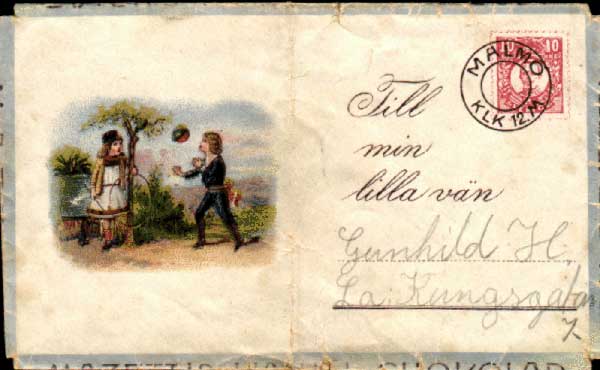 10 10
MALMÖ
KLK 12.M.
Till
min
lilla vän
Gunhild H.
La Kungsgatan
7
MAZETTI CHOKLAD